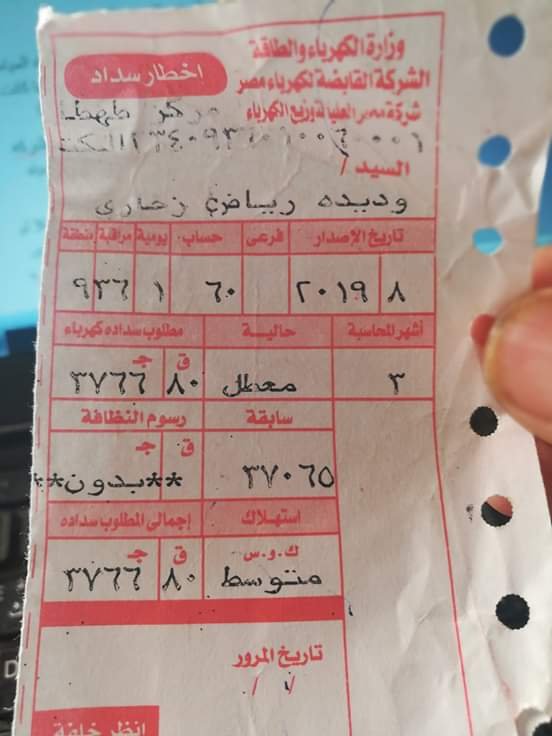 وزارة الكهرباء والطاقة
الشركة القابضة لكهرباء مصر
شركة مصر العليا لتوزيع الكهرباء
اخطار سداد
مركز طهطا
السيد /
وديده رياض زخارى
تاريخ الإصدار فرعى حساب يومية مراقبة منطقة
٨ ٢٠١٩ ٦٠ ١ ٩٣٦
أشهر المحاسبة حاليـة مطلوب سداده كهرباء
ق جـ
٣ معطل ٨٠ ٣٧٦٦
سابقة رسوم النظافة
ق جـ
٣٧٠٦٥ **بدون**
استهلاك إجمالى المطلوب سداده
ك.و.س ق جـ
متوسط ٨٠ ٣٧٦٦
تاريخ المرور
/ /
انظر خلفة